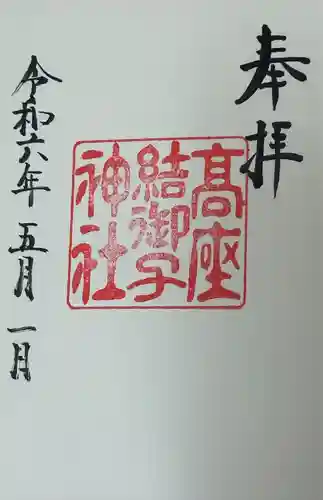 奉拝
髙座
結御子
神社
令和六年五月一日